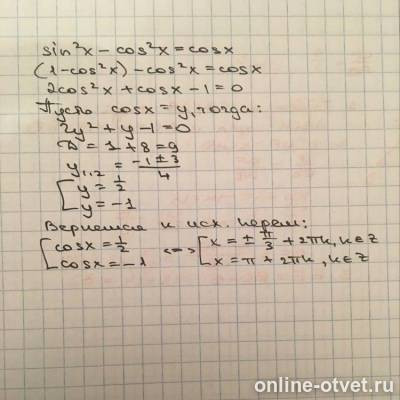 sin²x − cos²x = cosx
(1−cos²x) − cos²x = cosx
2cos²x + cosx − 1 = 0
Пусть cosx = y, тогда:
2y² + y − 1 = 0
D = 1 + 8 = 9
y₁,₂ = (−1 ± 3)/4
[ y = 1/2
y = −1
Вернемся к исх. перем:
[ cosx = 1/2 <=> [ x = ± π/3 + 2πk, k∈Z
cosx = −1 x = π + 2πk, k∈Z
online-otvet.ru